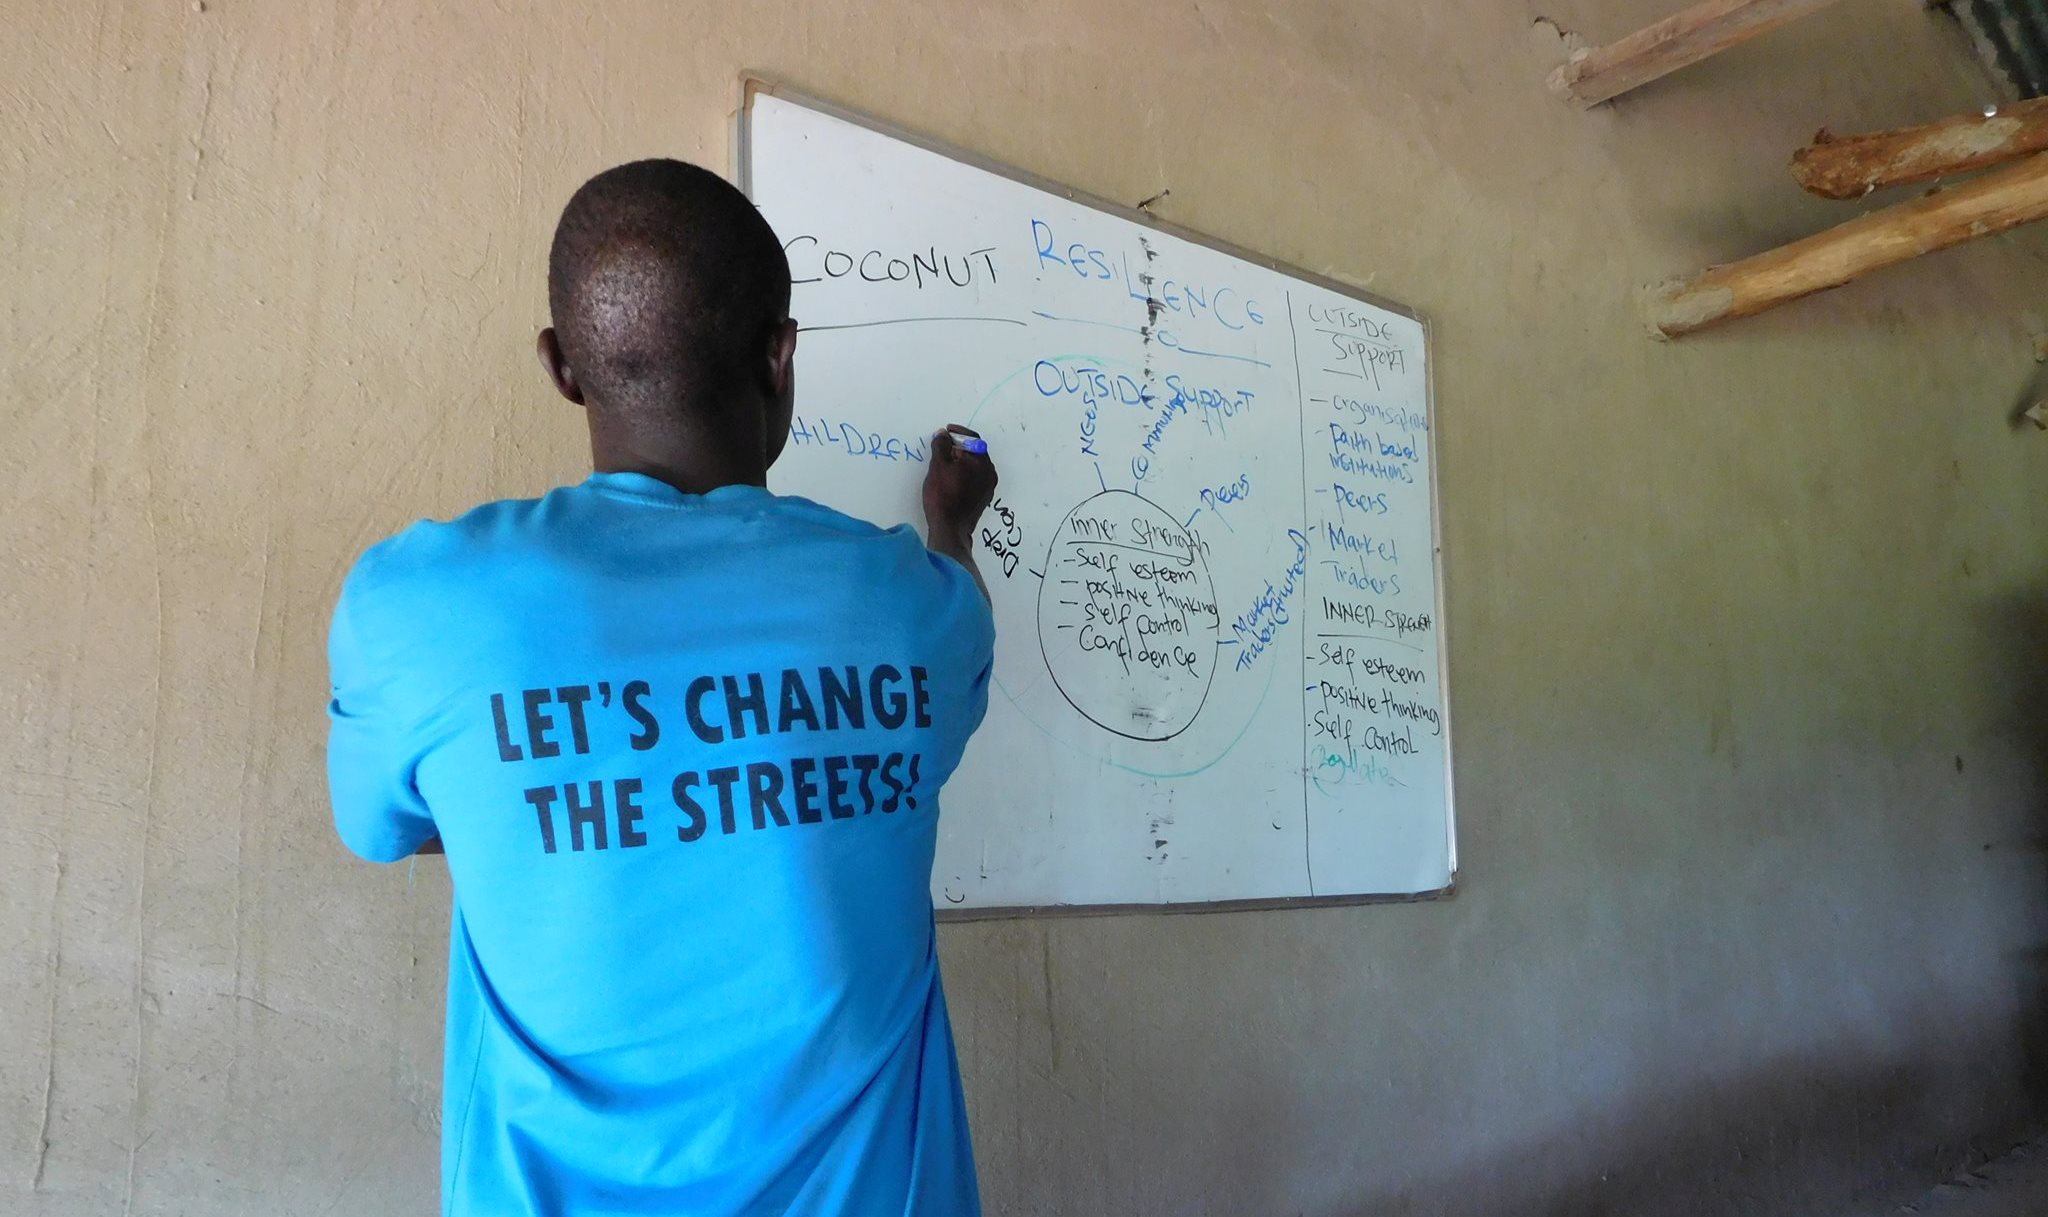 COCONUT RESILIENCE
OUTSIDE SUPPORT
HILDREN
NGOs
Peers
Drop
Inner Strength
- Self esteem
- positive thinking
- Self control
- Confidence
Market
OUTSIDE
SUPPORT
- Faith based
institutions
- Peers
- Market
Traders
INNER STRENGHT
- Self esteem
- positive thinking
- Self control
LET'S CHANGE
THE STREETS!